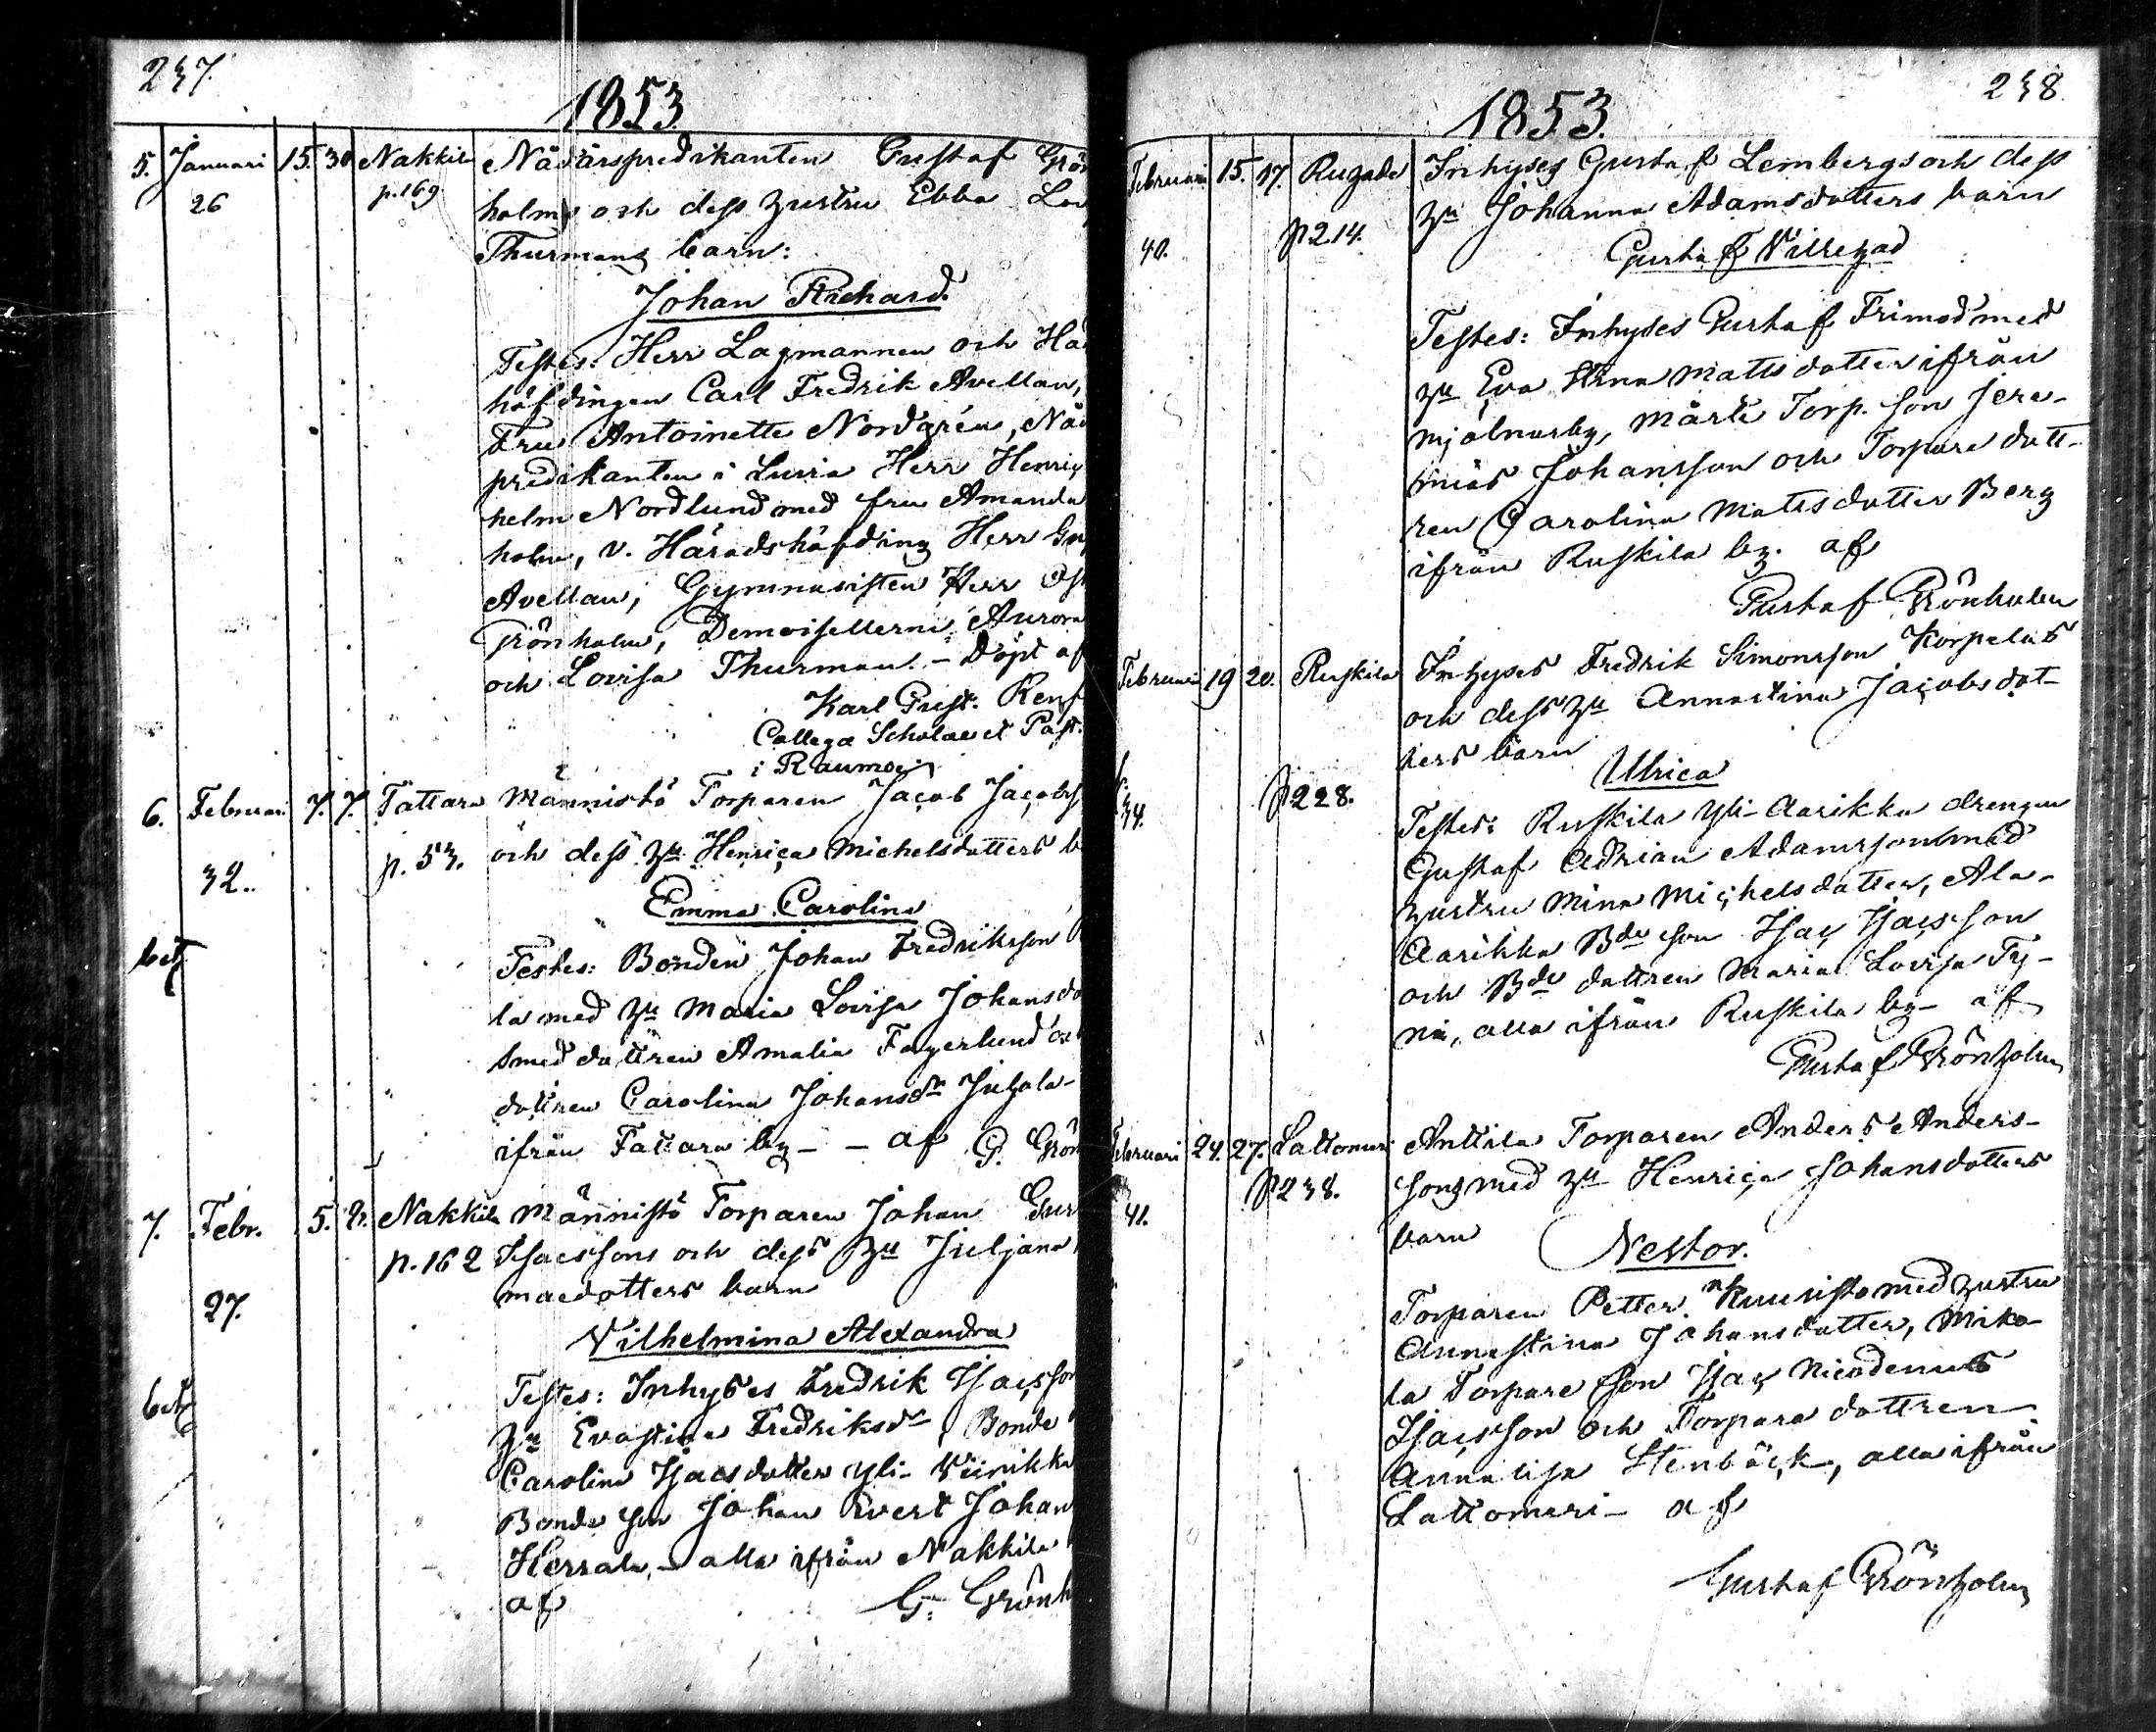 237.
1853.
5. Januari 15. 30 Nakkila Nådårspredikanten Gustaf Grön
26 p. 169 holms och dess hustru Ebba Lov
Thurmans barn:
Johan Richard.
Testes: Herr Lagmannen och Hä
höfdingen Carl Fredrik Avellan,
Fru Antoinette Nordgrén, Nåd
predikanten i Luvia Herr Henric
helm Nordlund med fru Amanda
holm, v. Häradshöfding Herr Gu
Avellan, Gymnasisten Herr Osk
Grönholm, Demoisellerne Aurora
och Lovisa Thurman. - Döpt af
Karl Gust. Renf
Collega Scholae et Past.
i Raumo
6. Februari 7. 7. Tattara Männistö Torparen Jacob Jacobs
32. p. 53. och dess hu Henrica Michelsdotters b
Emma Carolina
bet Testes: Bonden Johan Fredriksson
la med hu Maria Lovisa Johansdo
smed dottren Amalia Fagerlund oc
dottren Carolina Johansdr Juhola -
ifrån Tattara by - - af G. Grön
7. Febr. 5. 8. Nakkila Männistö Torparen Johan Gus
p. 162 Isacssons och dess hu Juljana
27. maedotters barn
Vilhelmina Alexandra
bet Testes: Inhyses Fredrik Isacsson
hu Evastina Fredriksdr Bonde
Carolina Isacsdotter Yli- Viinikka
Bonde son Johan Evert Johan
Herrala, - alla ifrån Nakkila
af G. Grönh
238.
1853.
Februari 15. 17. Rugade Inhyses Gustaf Lembergs och dess
hu Johanna Adamsdotters barn
40. p 214. Gustaf Villehad
Testes: Inhyses Gustaf Frimod med
hu Eva Stina Mattsdotter ifrån
Mjölnarby, Märte Torp. son Jere-
mias Johansson och Torpare dott-
ren Carolina Mattsdotter Berg
ifrån Ruskila by. af
Gustaf Grönholm
Februari 19 20. Ruskila Inhyses Fredrik Simonsson Korpelas
och dess hu Annastina Jacobsdot-
ters barn
Ulrica
34. p 228.
Testes: Ruskila Yli-Aarikka drengen
Gustaf Adrian Adamsson med
hustru Mina Michelsdotter, Ala-
Aarikka Bde son Isac Isacsson
och Bde dottren Maria Lovisa Ty-
ni, alla ifrån Ruskila by - af
Gustaf Grönholm
Februari 24. 27. Lattomeri Anttila Torparen Anders Anders-
p 238. sons med hu Henrica Johansdotters
41. barn
Nestor.
Torparen Petter Kuuristo med hustru
Annastina Johansdotter, Miko-
la Torpare son Isac Nicodemus
Isacsson och Torpare dottren
Annalisa Stenbäck, alla ifrån
Lattomeri - af
Gustaf Grönholm